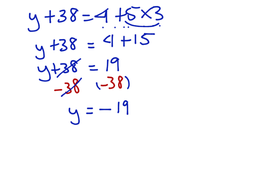 y + 38 = 4 + 5 × 3
y + 38 = 4 + 15
y + 38 = 19
-38 (-38)
y = -19